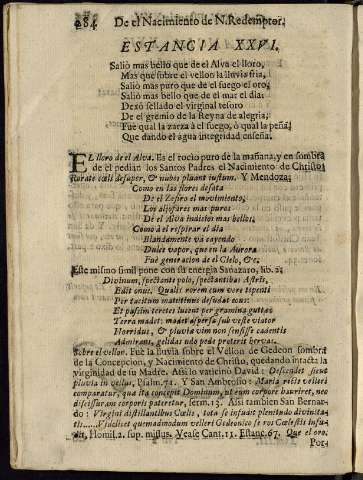 284 De el Nacimiento de N. Redemptor.
ESTANCIA XXVI.
Saliò mas bello que de el Alva el lloro,
Mas que sobre el vellon la lluvia fria,
Saliò mas puro que de el fuego el oro,
Saliò mas bello que de el mar el dia:
Dexò sellado el virginal tesoro
De el gremio de la Reyna de alegria,
Fue qual la zarza à el fuego, ò qual la peña,
Que dando el agua integridad enseña.
EL lloro de el Alva. Es el rocio puro de la mañana, y en sombra
de el pedian los Santos Padres el Nacimiento de Christo
Rorate cœli desuper, & nubes pluant iustum. Y Mendoza:
Como en las flores desata
De el Zefiro el movimiento,
Los aljofares mas puros
De el Alva indicios mas bellos.
Como à el respirar el dia
Blandamente và cayendo
Dulce vapor, que en la Aurora
Fue generacion de el Cielo, &c.
Este mismo simil pone con su energia Sanazaro, lib. 2.
Divinum, spectante polo, spectantibus Astris,
Edit onus. Qualis rorem cum vere tepenti
Per tacitum matutinus desudat eous:
Et passim teretes lucent per gramina guttæ
Terra madet: madet aspersa sub veste viator
Horridus, & pluvia vim non sensisse cadentis
Admirans, gelidas udo pede proterit herbas.
Sobre el vellon. Fue la lluvia sobre el Vellon de Gedeon sombra
de la Concepcion, y Nacimiento de Christo, quedando intacta la
virginidad de su Madre. Asi lo vaticinò David: Descendet sicut
pluvia in vellus, Psalm. 71. Y San Ambrosio: Maria ritè velleri
comparatur, qua ita concepit Dominum, ut eum corpore hauriret, nec
discissuram corporis pateretur, serm. 13. Asi tambien San Bernar-
do: Virgini distillantibus Cœlis, tota se infudit plenitudo divinita-
tis....... Videlicet quemadmodum velleri Gedeonico se ros Cœlestis infu-
dit, Homil. 2. sup. missus. Vease Cant. 11. Estanc. 67. Que el oro.
Por-